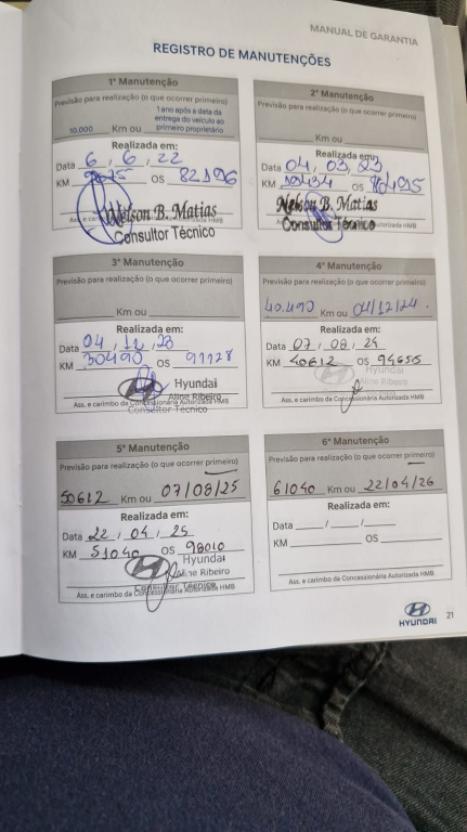 MANUAL DE GARANTIA
REGISTRO DE MANUTENÇÕES
1ª Manutenção
Previsão para realização (o que ocorrer primeiro)
10.000 Km ou 1 ano após a data da entrega do veículo ao primeiro proprietário
Realizada em:
Data 6 / 6 / 22
KM OS 82196
Nelson B. Matias
Consultor Técnico
2ª Manutenção
Previsão para realização (o que ocorrer primeiro)
Km ou
Realizada em:
Data 04, 03, 23
KM OS
Nelson B. Matias
Consultor Técnico
3ª Manutenção
Previsão para realização (o que ocorrer primeiro)
Km ou
Realizada em:
Data 04 / 12 / 23
KM 30490 OS 91128
Hyundai
Aline Ribeiro
Ass. e carimbo da Concessionária Autorizada HMB
Consultor Técnico
4ª Manutenção
Previsão para realização (o que ocorrer primeiro)
40.490 Km ou 04/12/24.
Realizada em:
Data 07 / 08 / 24
KM 40612 OS 94655
Hyundai
Aline Ribeiro
Ass. e carimbo da Concessionária Autorizada HMB
5ª Manutenção
Previsão para realização (o que ocorrer primeiro)
50612 Km ou 07/08/25
Realizada em:
Data 22 / 04 / 25
KM 51040 OS 98010
Hyundai
Aline Ribeiro
Consultor Técnico
Ass. e carimbo da Concessionária Autorizada HMB
6ª Manutenção
Previsão para realização (o que ocorrer primeiro)
61040 Km ou 22/04/26
Realizada em:
Data / /
KM OS
Ass. e carimbo da Concessionária Autorizada HMB
HYUNDAI
21